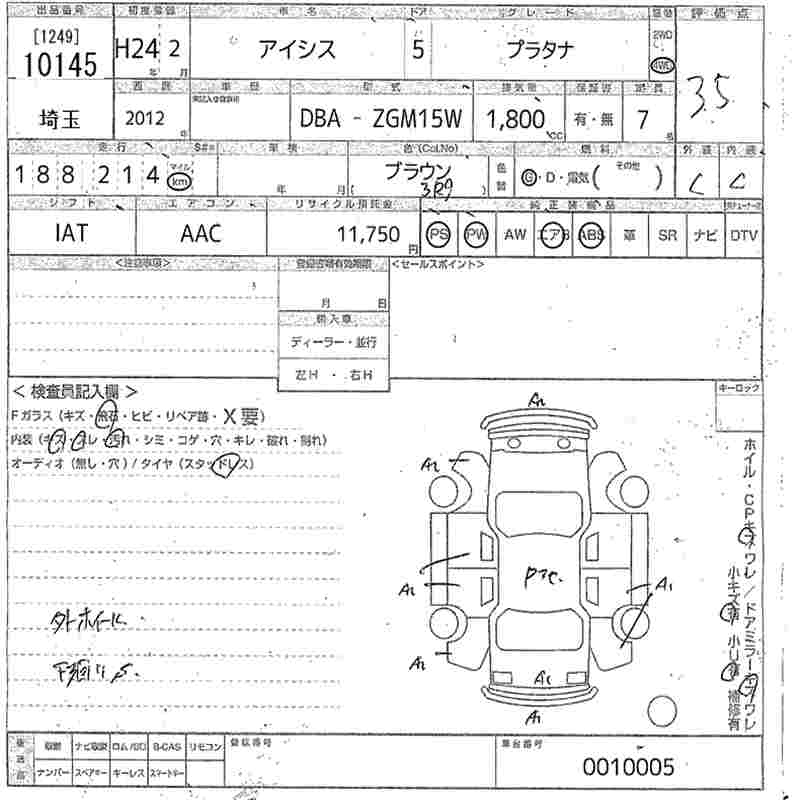 出品番号 初度登録 車名 ドア グレード 駆動 評価点
[1249] 10145 H24 2 年 月 アイシス 5 プラタナ 2WD 4WD 3.5
西暦 車歴 型式 排気量 保証書 定員
埼玉 2012 年 DBA - ZGM15W 1,800 cc 有・無 7 名
走行 車検 色(Col,No) 燃料 外装 内装
188214 マイル km 年 月 ブラウン ( 3R9 ) 色替 G・D・電気( その他 ) C C
シフト エアコン リサイクル預託金 純正装備品
IAT AAC 11,750 円 PS PW AW エアB ABS 革 SR ナビ DTV
<注意事項> 登録書類有効期限 <セールスポイント>
月 日
輸入車
ディーラー・並行
左H ・ 右H
< 検査員記入欄 > キーロック
Fガラス (キズ・飛石・ヒビ・リペア跡・X要)
内装 (キズ・スレ・汚れ・シミ・コゲ・穴・キレ・破れ・割れ)
オーディオ (無し・穴) / タイヤ (スタッドレス)
A2
A2
A2 A1
A2
A1
外ホイール
下廻りS.
ホイル・CPキズワレ / ドアミラーキズワレ
小キズ有 小凹有 補修有
後送品 取説 ナビ取説 ロム/SD B-CAS リモコン 登録番号 車台番号
ナンバー スペアキー キーレス スマートキー 0010005